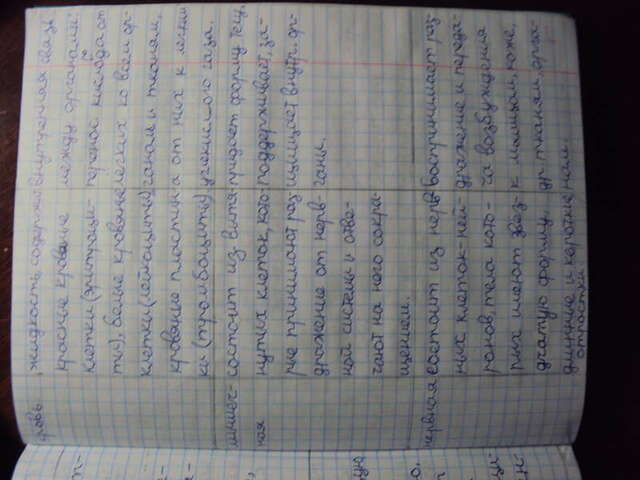 кровь
жидкость, содержит
красные кровяные
клетки (эритроци-
ты), белые кровяные
клетки (лейкоциты)
кровяные пластин-
ки (тромбоциты)
внутренняя связь
между органами:
перенос кислорода от
легких ко всем ор-
ганам и тканям,
а от них к легким
углекислого газа.
мышеч-
ная
состоит из вытя
нутых клеток, кото
рые принимают раз
дражение от нерв-
ной системы и отве-
чают на него сокра-
щением.
придает форму телу,
поддерживает, за-
щищает внутр. ор-
ганы.
нервная
состоит из нерв
ных клеток-ней-
ронов, тела кото-
рых имеют звез-
дчатую форму.
длинные и короткие
отростки
воспринимает раз
дражение и переда-
ча возбуждения
к мышцам, коже,
др. тканям, орга-
нам.